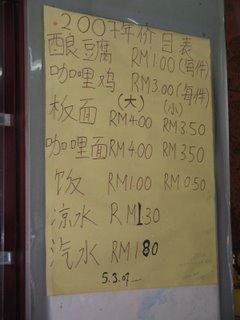 2007年价目表
酿豆腐 RM1.00(每件)
咖哩鸡 RM3.00(每件)
(大) (小)
板面 RM4.00 RM3.50
咖哩面 RM4.00 RM3.50
饭 RM1.00 RM0.50
凉水 RM1.30
汽水 RM1.80
5.3.07